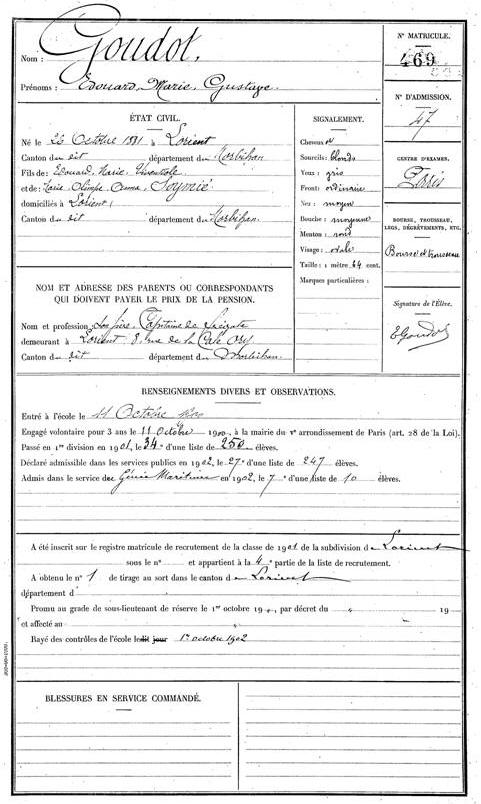 Nom : Goudot,
Prénoms : Edouard, Marie, Gustave.
N° MATRICULE.
469
N° D'ADMISSION.
47
CENTRE D'EXAMEN.
Paris
BOURSE, TROUSSEAU, LEGS, DÉGRÈVEMENTS, ETC.
Bourse et trousseau
Signature de l'Élève.
EGoudot
ÉTAT CIVIL.
Né le 26 Octobre 1881 à Lorient
Canton du dit département du Morbihan
Fils de : Edouard, Marie,
et de : Marie Olimpe
domiciliés à Lorient
Canton du dit département du Morbihan.
SIGNALEMENT.
Cheveux et
Sourcils : blonds
Yeux : gris
Front : ordinaire
Nez : moyen
Bouche : moyenne
Menton : rond
Visage : ovale
Taille : 1 mètre 64 cent.
Marques particulières :
NOM ET ADRESSE DES PARENTS OU CORRESPONDANTS
QUI DOIVENT PAYER LE PRIX DE LA PENSION.
Nom et profession : Son père, Capitaine de Frégate
demeurant à Lorient 8, rue de la Cale Ory
Canton du dit département du Morbihan.
RENSEIGNEMENTS DIVERS ET OBSERVATIONS.
Entré à l'école le 11 Octobre 1900
Engagé volontaire pour 3 ans le 11 Octobre 1900, à la mairie du Ve arrondissement de Paris (art. 28 de la Loi).
Passé en 1re division en 1901, le 34e d'une liste de 250 élèves.
Déclaré admissible dans les services publics en 1902, le 27e d'une liste de 247 élèves.
Admis dans le service du Génie Maritime en 1902, le 7e d'une liste de 10 élèves.
A été inscrit sur le registre matricule de recrutement de la classe de 1901 de la subdivision de Lorient
sous le n° et appartient à la 4e partie de la liste de recrutement.
A obtenu le n° 1 de tirage au sort dans le canton de Lorient
département d
Promu au grade de sous-lieutenant de réserve le 1er octobre 19 , par décret du " 19
et affecté au "
Rayé des contrôles de l'école ledit jour 1er octobre 1902
BLESSURES EN SERVICE COMMANDÉ.